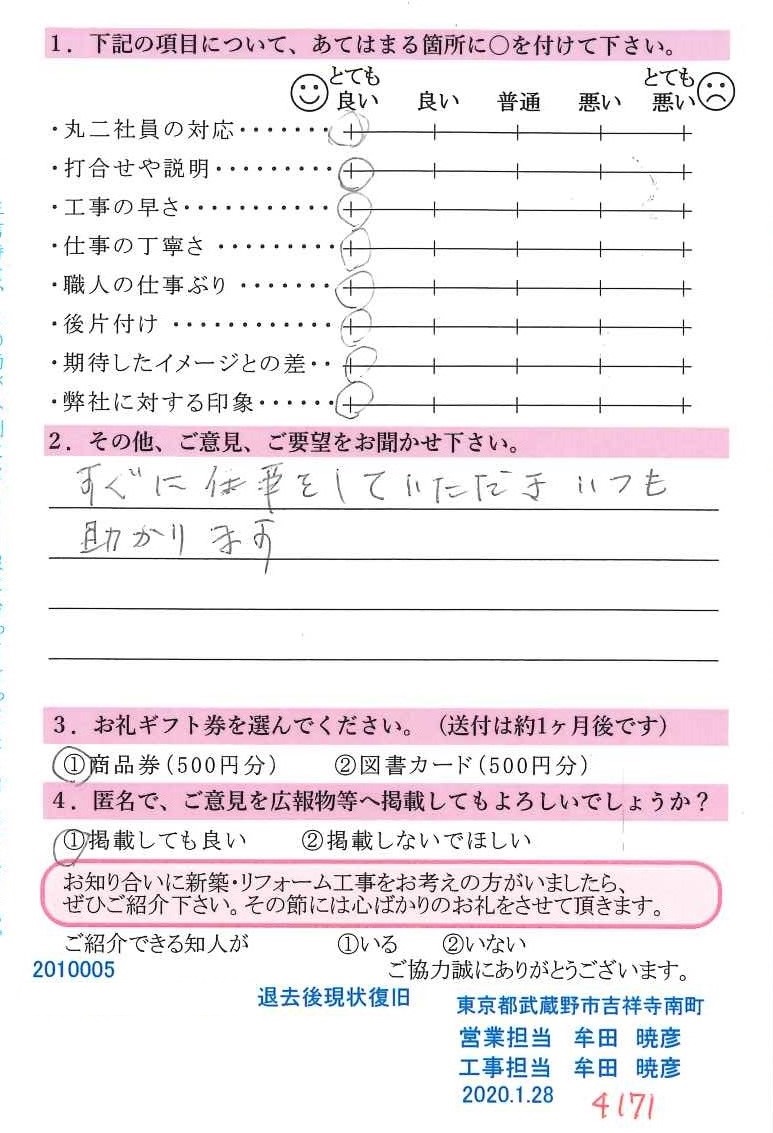 1．下記の項目について、あてはまる箇所に○を付けて下さい。
とても良い 良い 普通 悪い とても悪い
・丸二社員の対応・・・・・・・
・打合せや説明・・・・・・・・・
・工事の早さ・・・・・・・・・・・
・仕事の丁寧さ ・・・・・・・・・
・職人の仕事ぶり ・・・・・・・
・後片付け ・・・・・・・・・・・・
・期待したイメージとの差・・
・弊社に対する印象・・・・・・
2．その他、ご意見、ご要望をお聞かせ下さい。
すぐに仕事をしていただき いつも
助かります
3．お礼ギフト券を選んでください。（送付は約1ヶ月後です）
①商品券（500円分） ②図書カード（500円分）
4．匿名で、ご意見を広報物等へ掲載してもよろしいでしょうか？
①掲載しても良い ②掲載しないでほしい
お知り合いに新築・リフォーム工事をお考えの方がいましたら、
ぜひご紹介下さい。その節には心ばかりのお礼をさせて頂きます。
ご紹介できる知人が ①いる ②いない
2010005 ご協力誠にありがとうございます。
退去後現状復旧 東京都武蔵野市吉祥寺南町
営業担当 牟田 暁彦
工事担当 牟田 暁彦
2020.1.28 4171